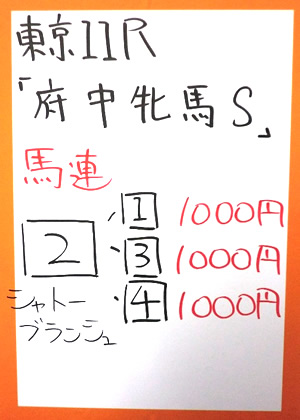 東京11R
「府中牝馬S」
馬連
1 1000円
2 3 1000円
4 1000円
シャトー
ブランシュ